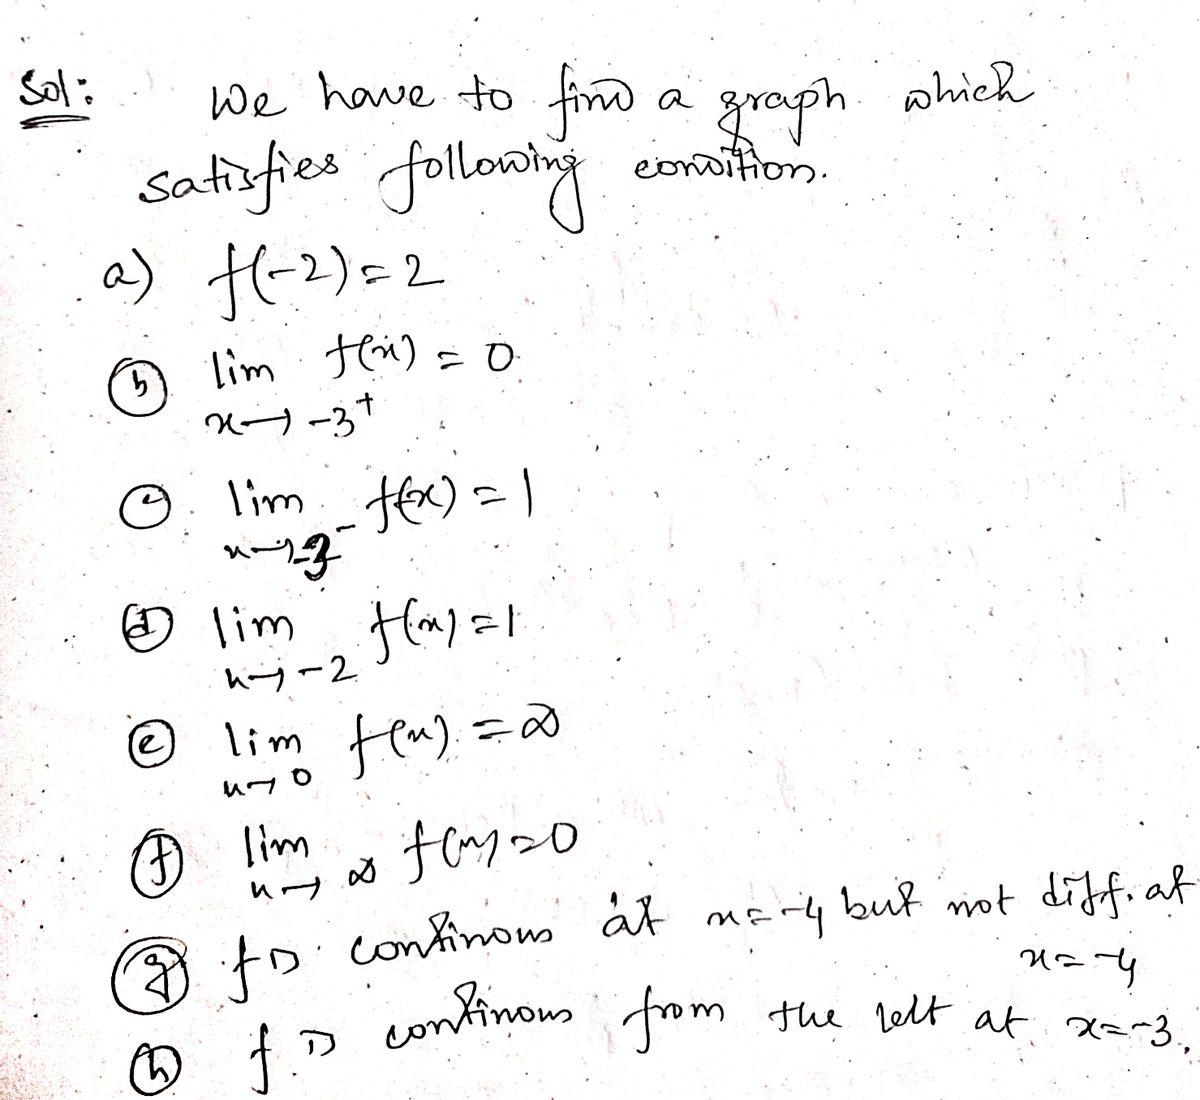 Sol: We have to find a graph which
satisfies following condition.
a) f(-2)=2
(b) lim f(x) = 0
x→ -3⁺
(c) lim f(x) = 1
x→-3⁻
(d) lim f(x)=1
x→-2
(e) lim f(x) = ∞
x→0
(f) lim f(x)=0
x→∞
(g) f is continous at x=-4 but not diff. at
x=-4
(h) f is continous from the left at x=-3.